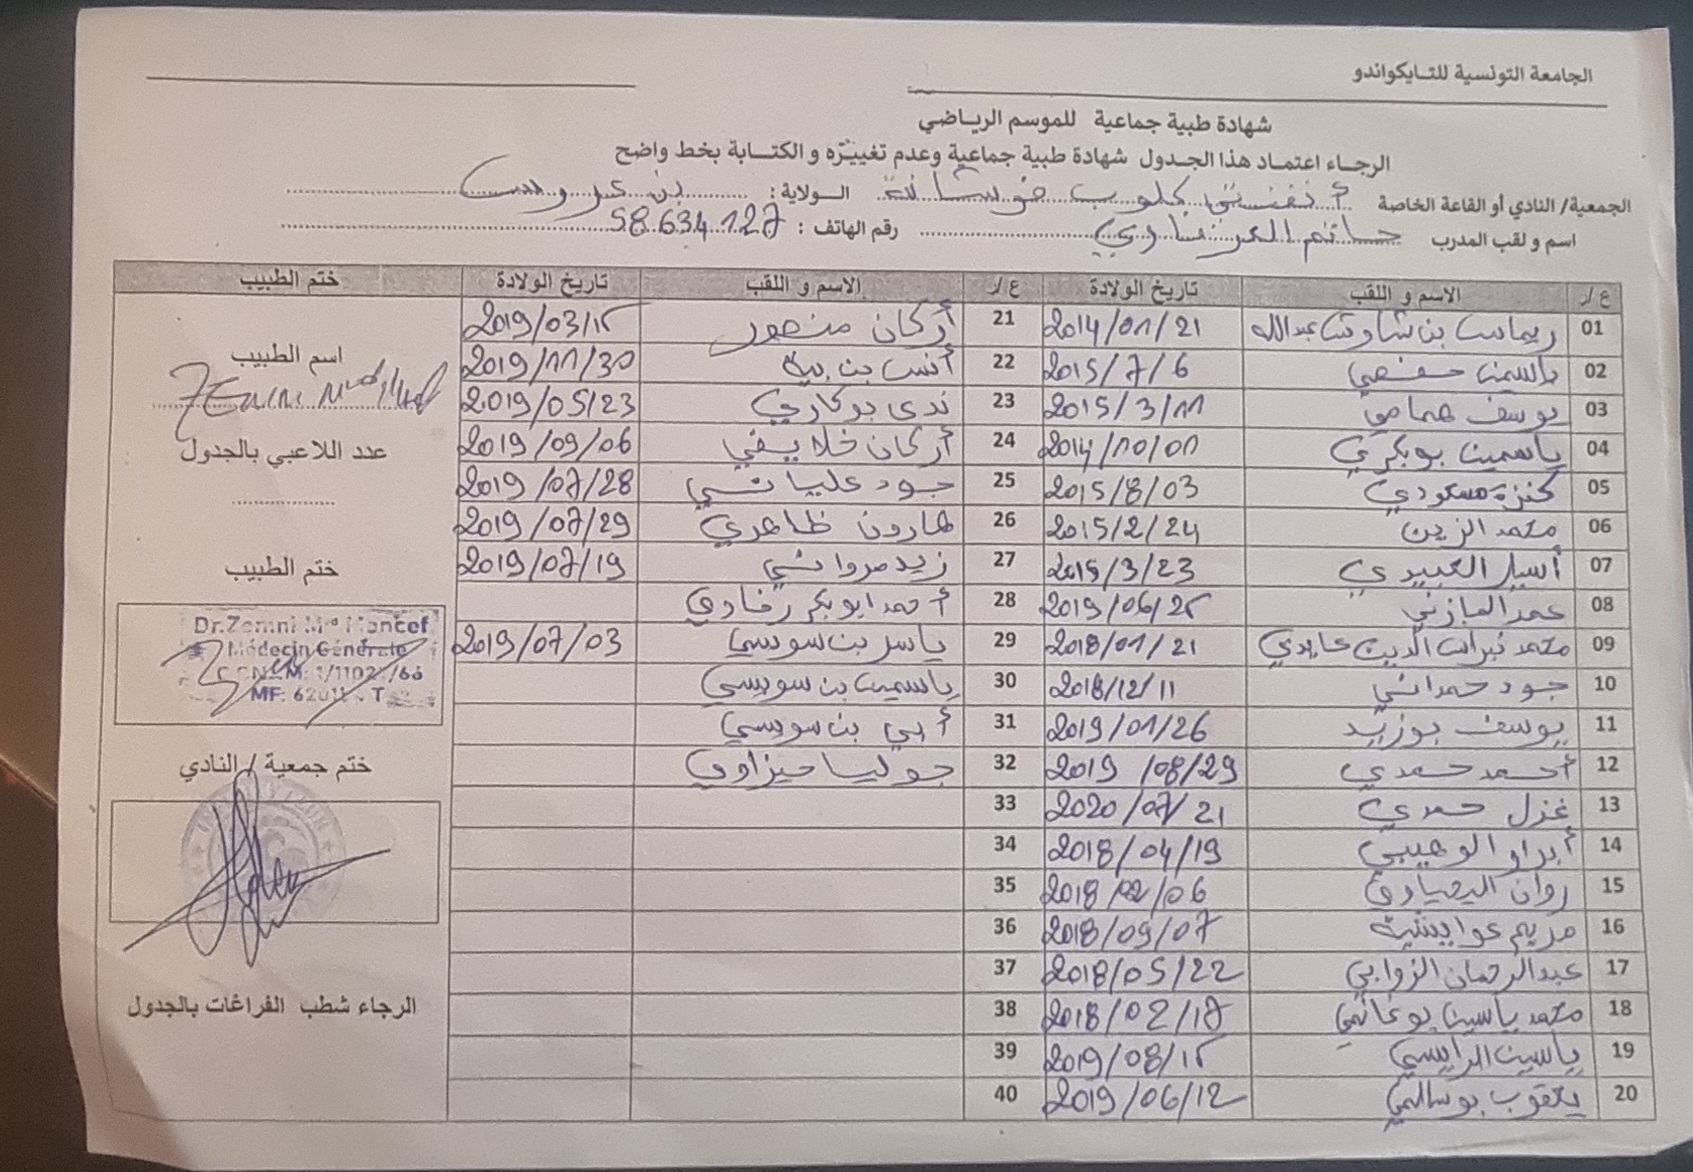 الجامعة التونسية للتـايكواندو
شهادة طبية جماعية للموسم الرياضي
الرجاء اعتماد هذا الجدول شهادة طبية جماعية وعدم تغييره و الكتابة بخط واضح
الجمعية/ النادي أو القاعة الخاصة أنفنتي كلوب فوشانة الـولاية: بن عروس
اسم و لقب المدرب حاتم رقم الهاتف: 58.634.127
ع/ر الاسم و اللقب تاريخ الولادة ع/ر الاسم و اللقب تاريخ الولادة ختم الطبيب
01 ريماس بن عبدالله 2014/01/21 21 أركان منصور 2019/03/15
02 ياسمين حفصي 2015/7/6 22 أنس بن بية 2019/11/30
اسم الطبيب
03 يوسف همامي 2015/3/11 23 ندى بوكاري 2019/05/23
04 ياسمين بوبكري 2014/10/01 24 أركان خلايفي 2019/09/06
عدد اللاعبي بالجدول
05 كنزة مسعودي 2015/8/03 25 جود عليانسي 2019/07/28
06 محمد الزين 2015/2/24 26 هارون ظاهري 2019/07/29
07 أسيل العبيدي 2015/3/23 27 زيد مرواني 2019/07/19
ختم الطبيب
08 عمر المازني 2019/06/25 28 أحمد ابوبكر رفادي
09 محمد الدين عابدي 2018/01/21 29 ياسر بن سويسي 2019/07/03
Dr.Zemni Med Moncef
Médecin Générale
10 جود حمداني 2018/12/11 30 ياسمين بن سويسي
11 يوسف بوزيد 2019/01/26 31 أبي بن سويسي
12 أحمد حمدي 2019/08/29 32 جوليا ميزاوي
ختم جمعية / النادي
13 غزل حمدي 2020/07/21 33
14 أبرار الوهيبي 2018/04/19 34
15 روان اليحياوي 2018/02/06 35
16 مريم عوايشية 2018/09/07 36
17 عبدالرحمان الزوابي 2018/05/22 37
الرجاء شطب الفراغات بالجدول
18 محمد ياسين بوغانمي 2018/02/17 38
19 ياسين الرايسي 2019/08/15 39
20 يعقوب بوسالمي 2019/06/12 40